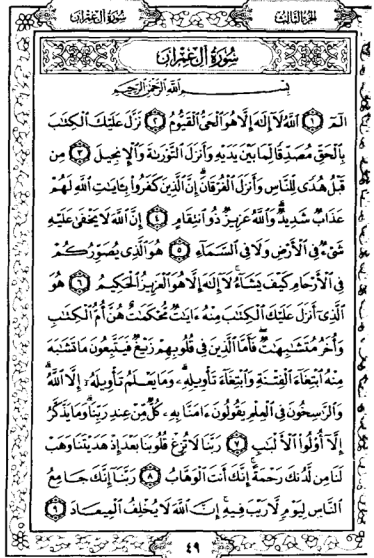 سُورَةُ آلِ عِمْرَان
الجُزْءُ الثَّالِث
سُورَةُ آلِ عِمْرَان
بِسْمِ اللَّهِ الرَّحْمَٰنِ الرَّحِيمِ
الٓمٓ ١ اللَّهُ لَآ إِلَٰهَ إِلَّا هُوَ الْحَىُّ الْقَيُّومُ ٢ نَزَّلَ عَلَيْكَ الْكِتَٰبَ
بِالْحَقِّ مُصَدِّقًا لِّمَا بَيْنَ يَدَيْهِ وَأَنزَلَ التَّوْرَىٰةَ وَالْإِنجِيلَ ٣ مِن
قَبْلُ هُدًى لِّلنَّاسِ وَأَنزَلَ الْفُرْقَانَ إِنَّ الَّذِينَ كَفَرُوا بِـَٔايَٰتِ اللَّهِ لَهُمْ
عَذَابٌ شَدِيدٌ وَاللَّهُ عَزِيزٌ ذُو انتِقَامٍ ٤ إِنَّ اللَّهَ لَا يَخْفَىٰ عَلَيْهِ
شَىْءٌ فِى الْأَرْضِ وَلَا فِى السَّمَآءِ ٥ هُوَ الَّذِى يُصَوِّرُكُمْ
فِى الْأَرْحَامِ كَيْفَ يَشَآءُ لَآ إِلَٰهَ إِلَّا هُوَ الْعَزِيزُ الْحَكِيمُ ٦ هُوَ
الَّذِىٓ أَنزَلَ عَلَيْكَ الْكِتَٰبَ مِنْهُ ءَايَٰتٌ مُّحْكَمَٰتٌ هُنَّ أُمُّ الْكِتَٰبِ
وَأُخَرُ مُتَشَٰبِهَٰتٌ فَأَمَّا الَّذِينَ فِى قُلُوبِهِمْ زَيْغٌ فَيَتَّبِعُونَ مَا تَشَٰبَهَ
مِنْهُ ابْتِغَآءَ الْفِتْنَةِ وَابْتِغَآءَ تَأْوِيلِهِۦ وَمَا يَعْلَمُ تَأْوِيلَهُۥٓ إِلَّا اللَّهُ
وَالرَّٰسِخُونَ فِى الْعِلْمِ يَقُولُونَ ءَامَنَّا بِهِۦ كُلٌّ مِّنْ عِندِ رَبِّنَا وَمَا يَذَّكَّرُ
إِلَّآ أُولُوا الْأَلْبَٰبِ ٧ رَبَّنَا لَا تُزِغْ قُلُوبَنَا بَعْدَ إِذْ هَدَيْتَنَا وَهَبْ
لَنَا مِن لَّدُنكَ رَحْمَةً إِنَّكَ أَنتَ الْوَهَّابُ ٨ رَبَّنَآ إِنَّكَ جَامِعُ
النَّاسِ لِيَوْمٍ لَّا رَيْبَ فِيهِ إِنَّ اللَّهَ لَا يُخْلِفُ الْمِيعَادَ ٩
٤٩